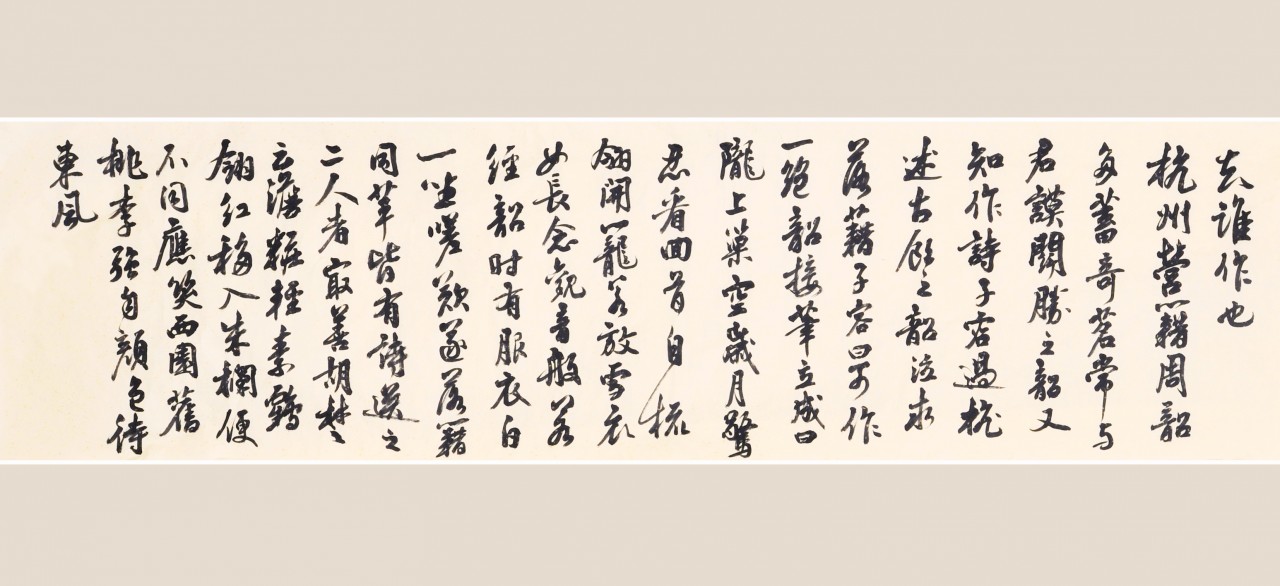 去誰作也
杭州營籍周韶
多蓄奇茗常与
君謨闘勝之韶又
知作詩子容過杭
述古飲之韶泣求
落藉子容曰可作
一絕韶接筆立成曰
隴上巢空歲月驚
忍看回首自梳
翎開籠若放雪衣
女長念觀音般若
經韶时有服衣白
一坐嗟歎遂落籍
同輩皆有詩送之
二人者寂善胡楚
云澹粧輕素鶴
翎紅移入朱欄便
不同應笑西園舊
桃李強自顏色待
東風